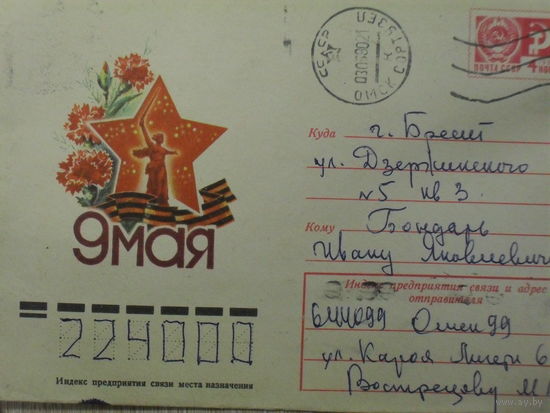 СССР
ОМСК
ПОЧТА СССР
Куда г. Брест
ул. Дзержинского
№5 кв 3.
Кому Бондарь
Ивану Яковлевич
9 МАЯ
Индекс предприятия связи и адрес
отправителя
644099 Омск 99
ул. Карла Либкн 6
Вострецову М
224000
Индекс предприятия связи места назначения
www.ay.by